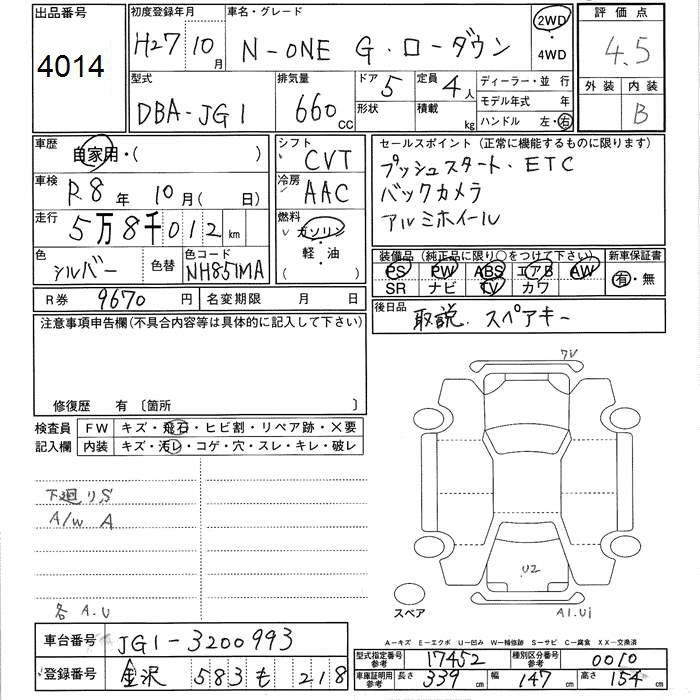 出品番号
4014
初度登録年月
H27 10月
車名・グレード
N-ONE G・ローダウン
2WD
・
4WD
評価点
4.5
外装 内装
B
型式
DBA-JG1
排気量
660 cc
ドア 5
形状
定員 4 人
積載 kg
ディーラー・並 行
モデル年式 年
ハンドル 左・右
車歴
自家用・( )
車検
R8 年 10 月( 日)
走行
5万8千012 km
色
シルバー
色替
色コード
NH851MA
シフト
CVT
冷房
AAC
燃料
ガソリン
軽・油
セールスポイント (正常に機能するものに限ります)
プッシュスタート・ETC
バックカメラ
アルミホイール
装備品 (純正品に限り○をつけて下さい)
PS PW ABS エアB AW
SR ナビ TV カワ
新車保証書
有・無
R券 9670 円
名変期限 月 日
後日品
取説. スペアキー
注意事項申告欄(不具合内容等は具体的に記入して下さい)
修復歴 有 〔箇所 〕
検査員
記入欄
FW キズ・飛石・ヒビ割・リペア跡・×要
内装 キズ・汚レ・コゲ・穴・スレ・キレ・破レ
下廻りS
A/W A
各A.U
7V
U2
スペア
A1.Ui
A-キズ E-エクボ U-凹み W-補修跡 S-サビ C-腐食 XX-交換済
車台番号 JG1-3200993
登録番号 金沢 583 も 218
型式指定番号 参考 17452
種別区分番号 参考 0010
車庫証明用 参考
長さ 339 cm
幅 147 cm
高さ 154 cm